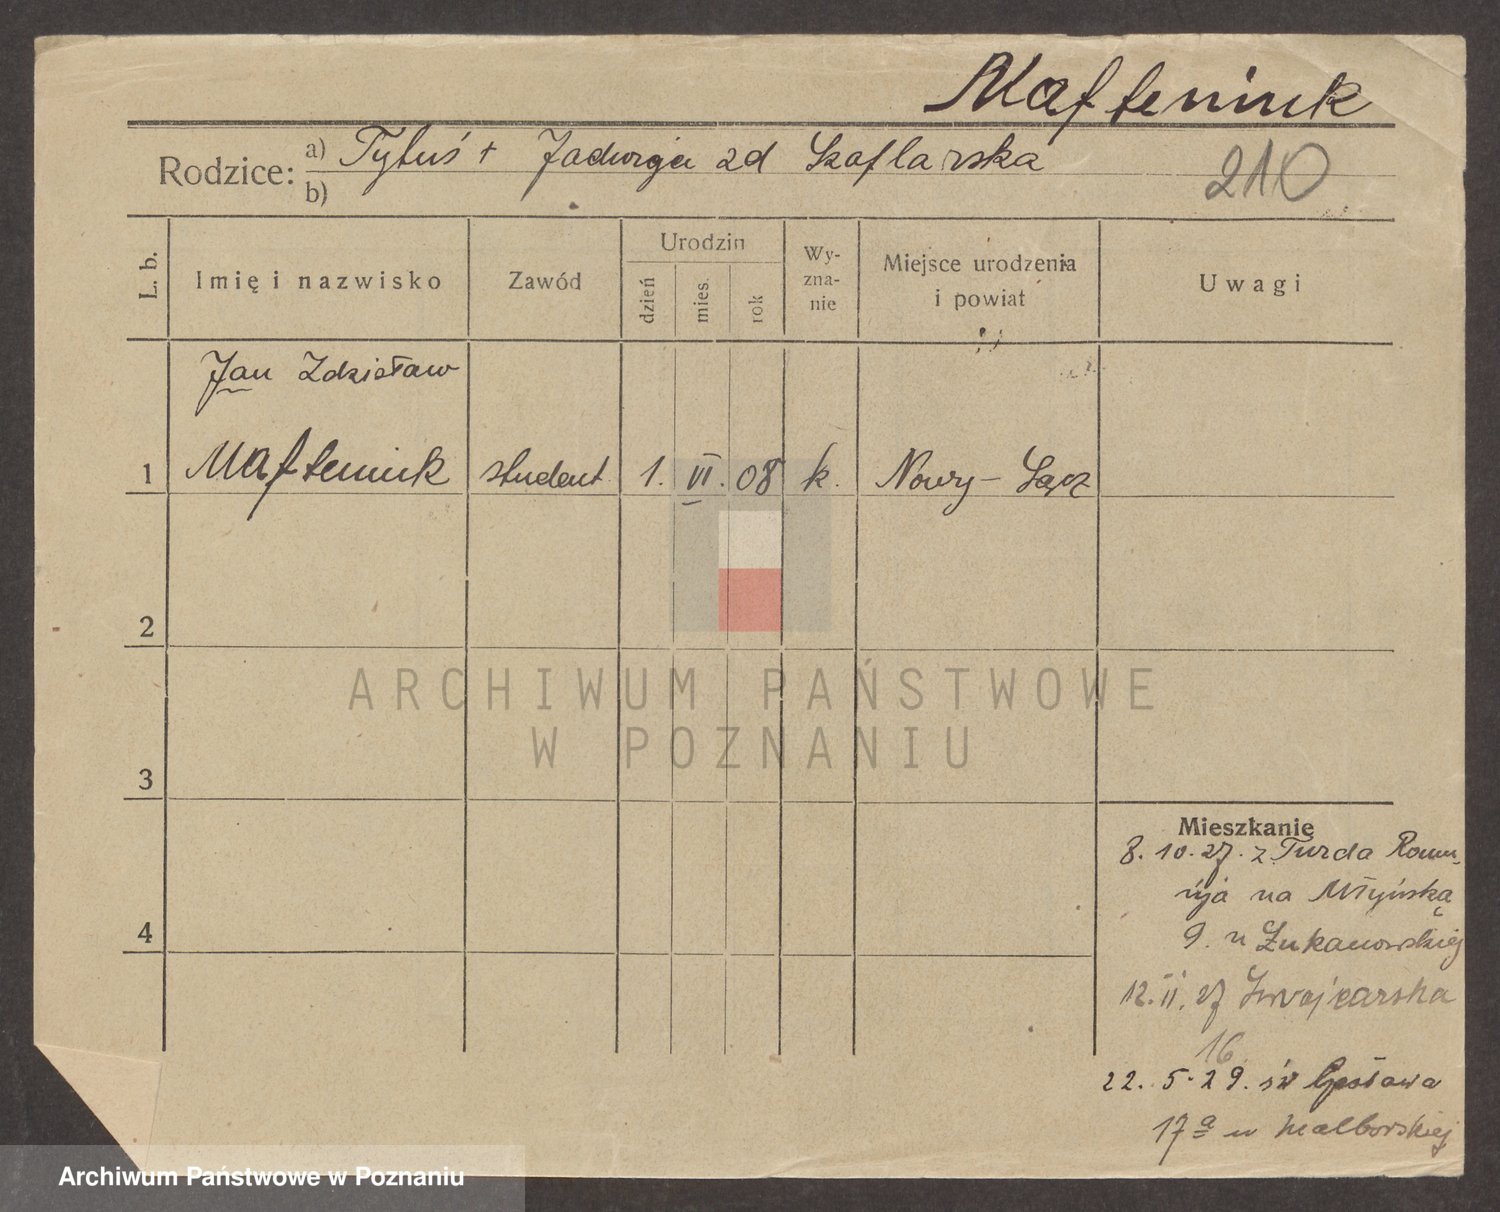 Mafteniuk
Rodzice: a) Tytuś + Jadwiga zd Szaflarska
b)
210
L. b.
Imię i nazwisko
Zawód
Urodzin
dzień
mies.
rok
Wy-
zna-
nie
Miejsce urodzenia
i powiat
Uwagi
Jan Zdzisław
1 Mafteniuk student 1. VI. 08 k. Nowy-Sącz
2
3
4
Mieszkanie
8. 10. 27. z Turda Rumu-
nja na Młyńską
9. u Żukanowskiej
12. II. 27 Szwajcarska
16
22. 5. 29. św
17a u Malborskiej
ARCHIWUM PAŃSTWOWE
W POZNANIU
Archiwum Państwowe w Poznaniu